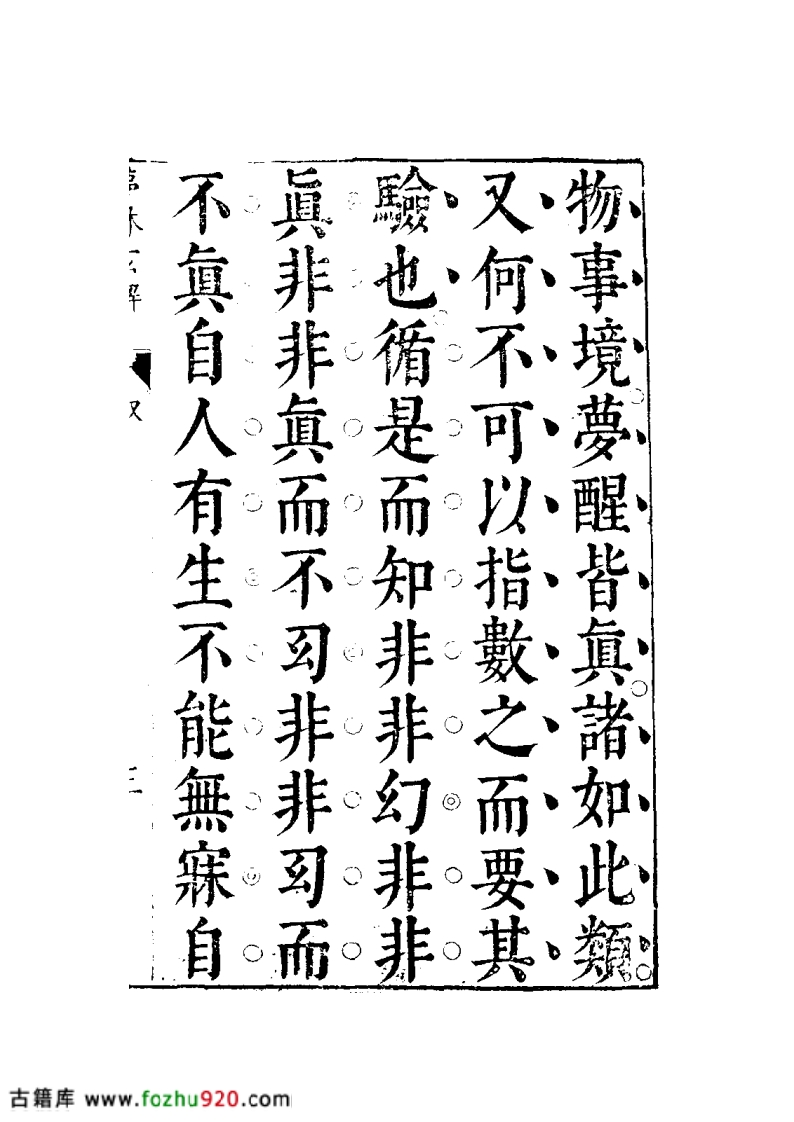 物事境夢醒皆眞諸如此類
又何不可以指數之而要其
驗也循是而知非非幻非非
眞非非眞而不㓜非非㓜而
不眞自人有生不能無寐自
三
古籍库 www.fozhu920.com